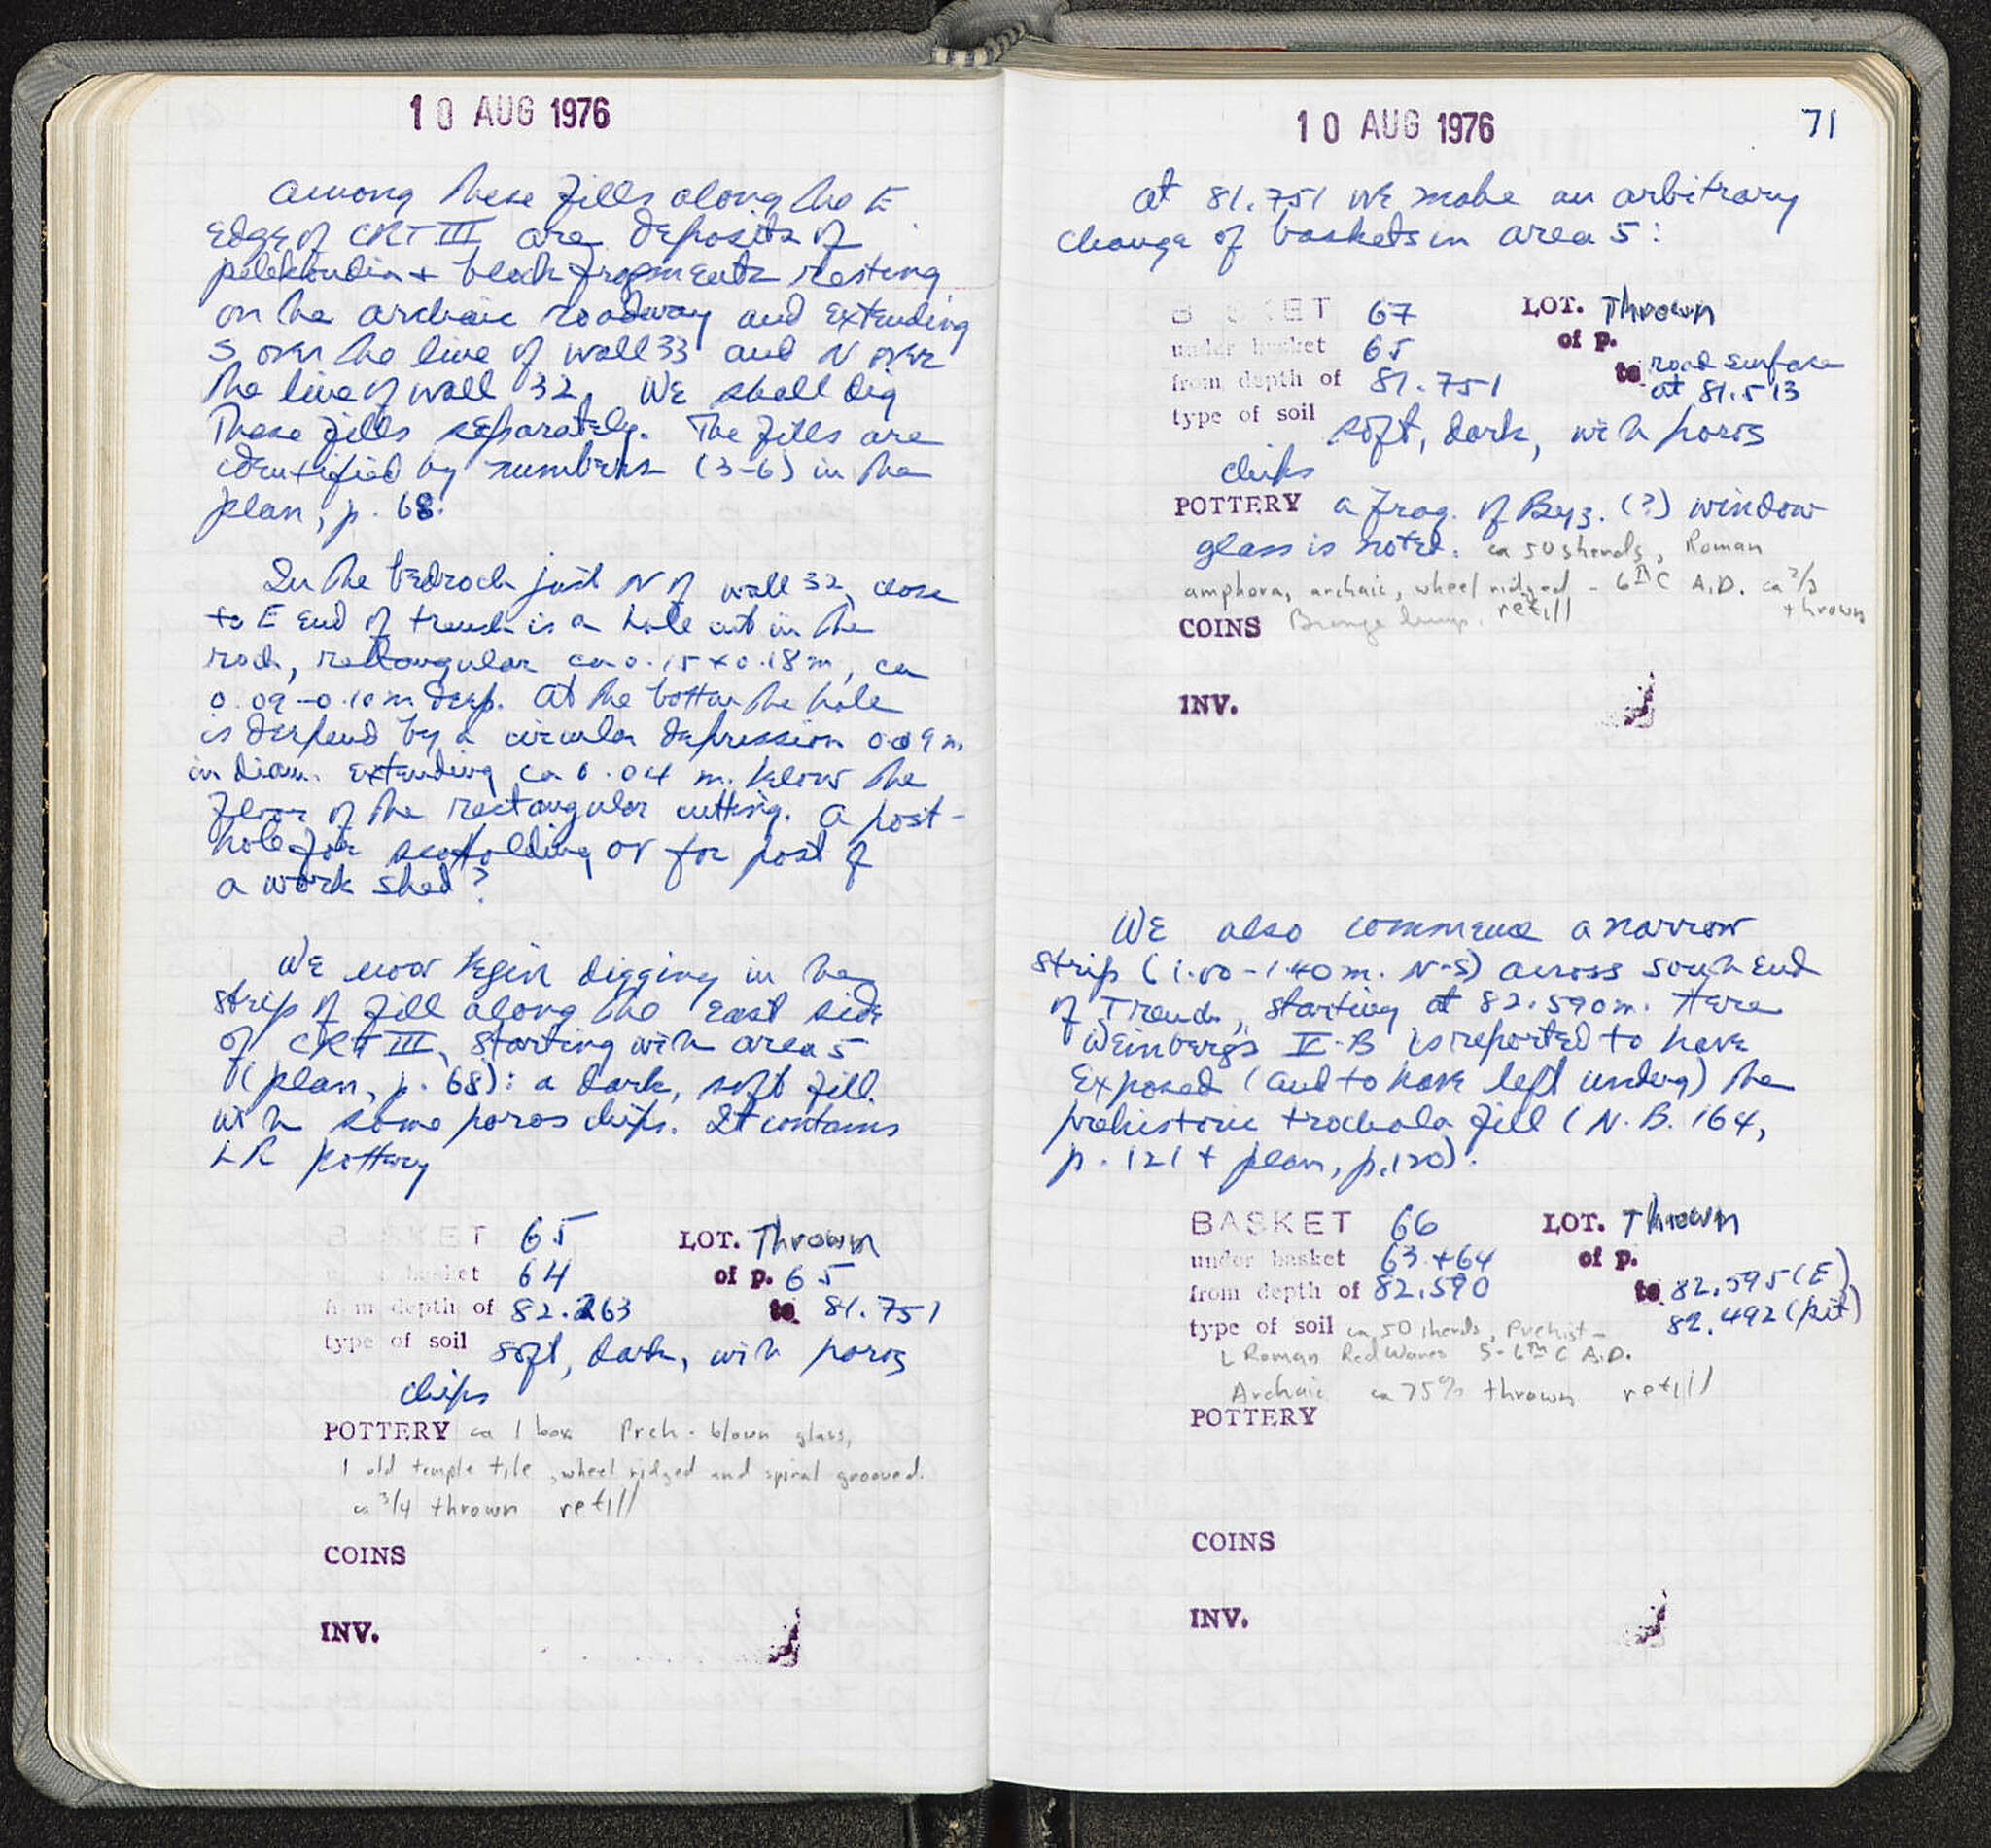 10 AUG 1976
Among these fills along the E
edge of CRT III are deposits of
pelekoudia + block fragments resting
on the archaic roadway and extending
S over the line of wall 33 and N over
the line of wall 32. We shall dig
these fills separately. The fills are
identified by numbers (3-6) in the
plan, p. 68.
In the bedrock just N of wall 32, close
to E end of trench is a hole cut in the
rock, rectangular ca 0.15 x 0.18 m, ca
0.09-0.10 m deep. At the bottom the hole
is deepend by a circular depression 0.09 m.
in diam. extending ca 0.04 m. below the
floor of the rectangular cutting. A post-
hole for scaffolding or for post of
a work shed?
We now begin digging in the
strip of fill along the East side
of CRT III, starting with area 5
(plan, p. 68): a dark, soft fill
with some poros chips. It contains
LR pottery
BASKET 65 LOT. Thrown
under basket 64 of p. 65
from depth of 82.263 to 81.751
type of soil soft, dark, with poros
chips
POTTERY ca 1 box Preh - blown glass,
1 old temple tile, wheel ridged and spiral grooved.
ca 3/4 thrown refill
COINS
INV.
10 AUG 1976 71
At 81.751 we make an arbitrary
change of baskets in area 5:
BASKET 67 LOT. Thrown
under basket 65 of p.
from depth of 81.751 to road surface
at 81.513
type of soil soft, dark, with poros
chips
POTTERY a frag. of Byz. (?) window
glass is noted. ca 50 sherds, Roman
amphora, archaic, wheel ridged - 6th C A.D. ca 2/3
thrown
refill
COINS Bronze lump.
INV.
We also commence a narrow
strip (1.00-1.40 m. N-S) across south end
of Trench, starting at 82.590 m. Here
Weinberg's V-B is reported to have
exposed (and to have left undug) the
prehistoric trochala fill (N.B. 164,
p. 121 + plan, p. 120).
BASKET 66 LOT. Thrown
under basket 63 + 64 of p.
from depth of 82.590 to 82.595 (E)
82.492 (pit)
type of soil ca 50 sherds, Prehist -
L Roman Red Wares 5-6th C A.D.
Archaic ca 75% thrown refill
POTTERY
COINS
INV.